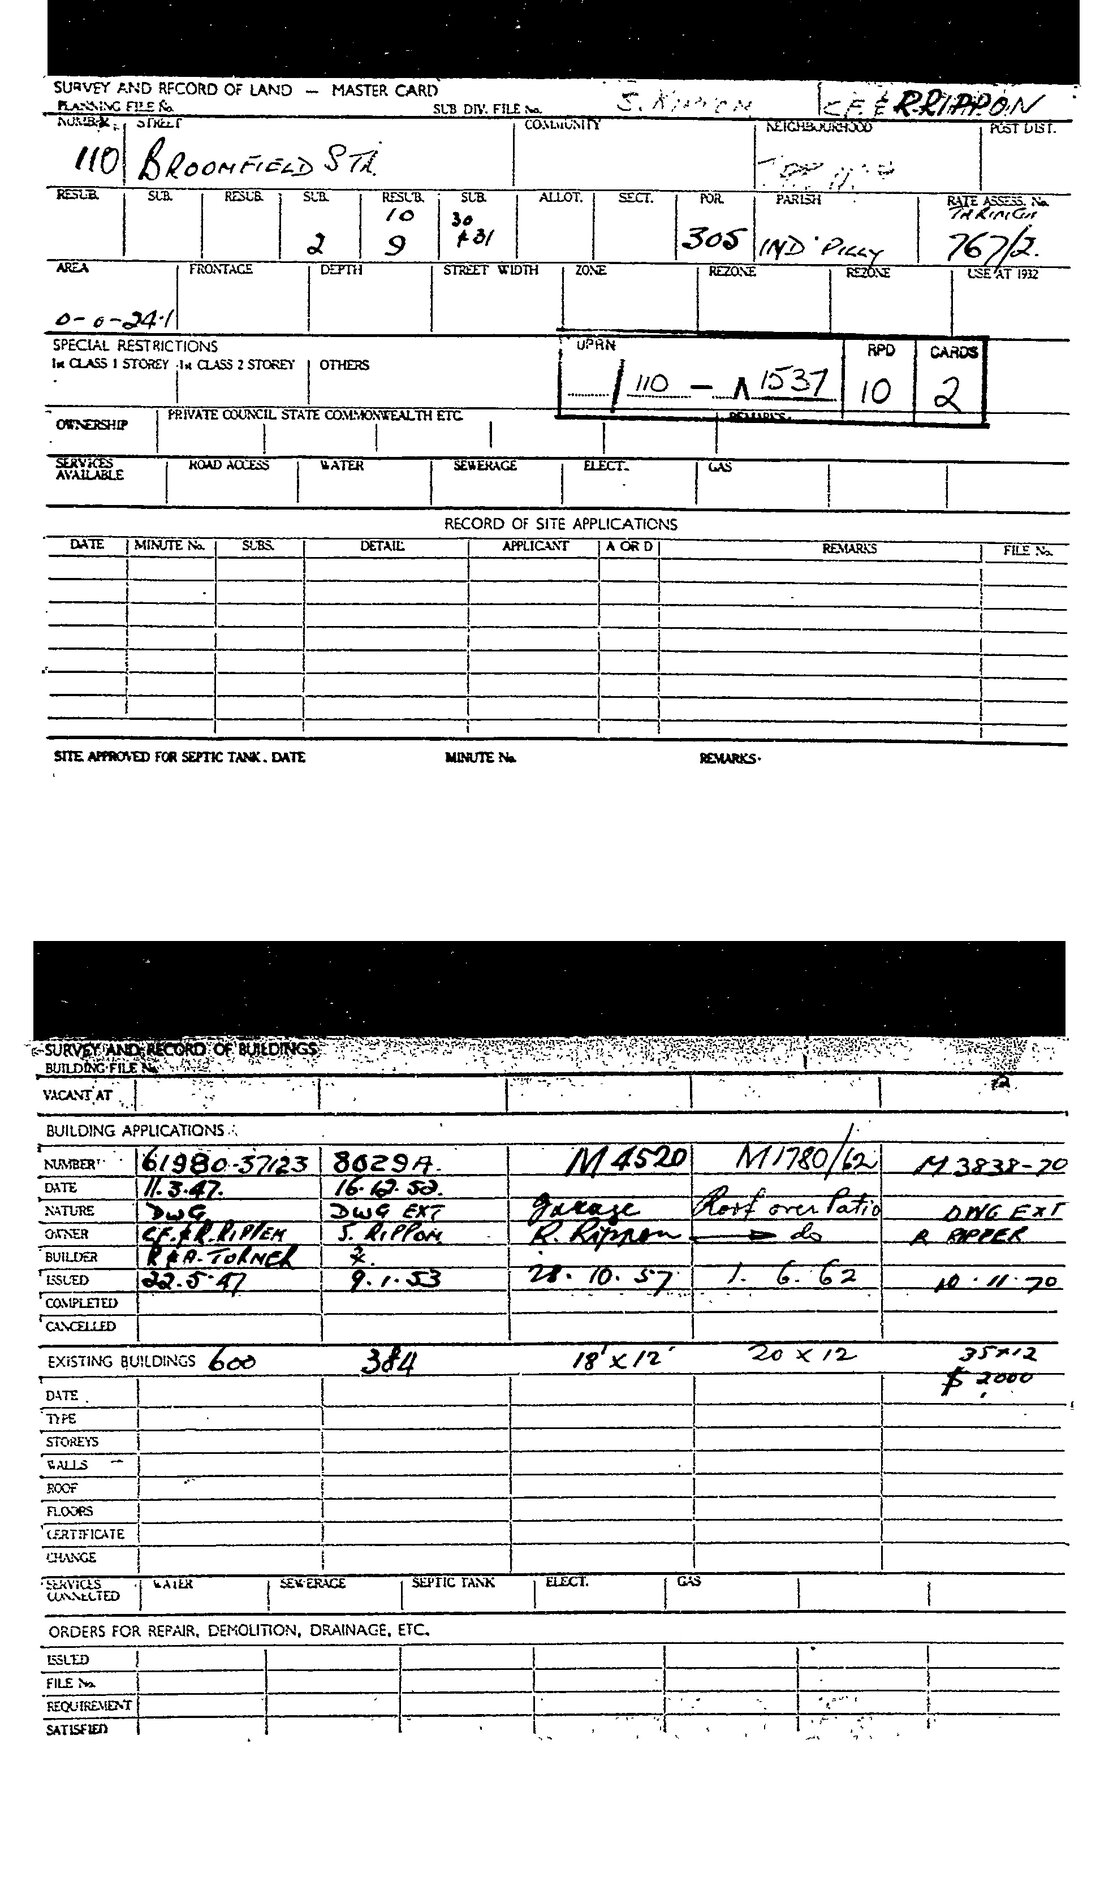 SURVEY AND RECORD OF LAND — MASTER CARD
PLANNING FILE No. SUB DIV. FILE No. C.F. & R. RIPPON
NUMBER STREET COMMUNITY NEIGHBOURHOOD POST DIST.
110 BROOMFIELD STR.
RESUB. SUB. RESUB. SUB. RESUB. SUB. ALLOT. SECT. POR. PARISH RATE ASSESS. No.
10 30
2 9 & 31 305 IND'PILLY 767/2.
AREA FRONTAGE DEPTH STREET WIDTH ZONE REZONE REZONE USE AT 1932
0-0-24.1
SPECIAL RESTRICTIONS UPRN RPD CARDS
1st CLASS 1 STOREY 1st CLASS 2 STOREY OTHERS
/ 110 — 1537 10 2
OWNERSHIP PRIVATE COUNCIL STATE COMMONWEALTH ETC. REMARKS.
SERVICES AVAILABLE ROAD ACCESS WATER SEWERAGE ELECT. GAS
RECORD OF SITE APPLICATIONS
DATE MINUTE No. SUBS. DETAIL APPLICANT A OR D REMARKS FILE No.
SITE APPROVED FOR SEPTIC TANK. DATE MINUTE No. REMARKS.
SURVEY AND RECORD OF BUILDINGS
BUILDING FILE No.
VACANT AT
BUILDING APPLICATIONS
NUMBER 61980-37123 8029A. M 4520 M1780/62 M 3838-70
DATE 11.3.47. 16.12.52.
NATURE DWG DWG EXT garage Roof over Patio DWG EXT
OWNER C.F. & R. RIPPEN J. RIPPON R. Rippon do R RIPPER
BUILDER R & A. TURNER
ISSUED 22.5.47 9.1.53 28.10.57 1.6.62 10.11.70
COMPLETED
CANCELLED
EXISTING BUILDINGS 600 384 18' x 12' 20 x 12 35x12
$ 2000
DATE
TYPE
STOREYS
WALLS
ROOF
FLOORS
CERTIFICATE
CHANGE
SERVICES CONNECTED WATER SEWERAGE SEPTIC TANK ELECT. GAS
ORDERS FOR REPAIR, DEMOLITION, DRAINAGE, ETC.
ISSUED
FILE No.
REQUIREMENT
SATISFIED